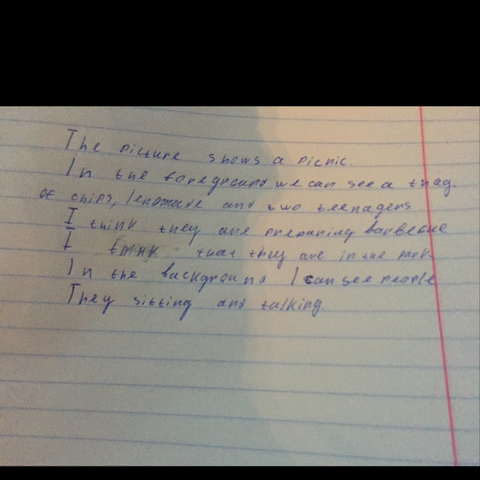 The picture shows a picnic.
In the foreground we can see a
of chips, lenomade and two teenagers
I think they are preparing barbecue
I think that they are in the park
In the background I can see people
They sitting and talking.